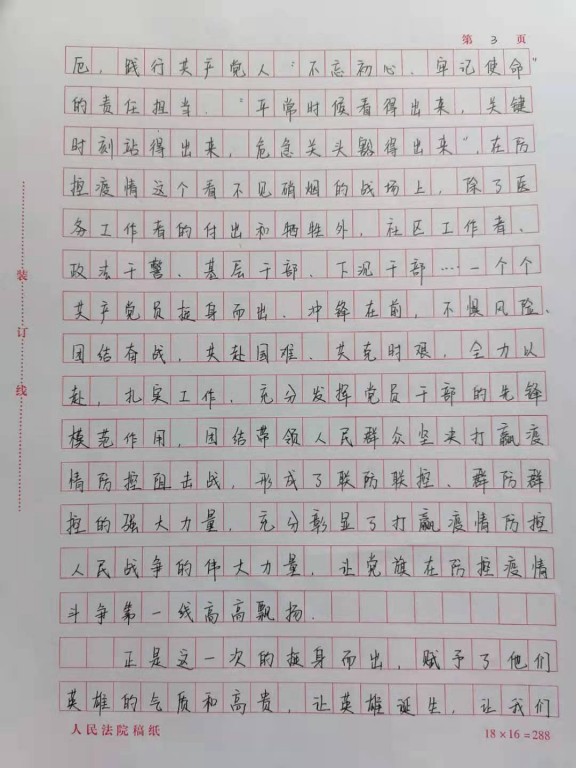 第 3 页
厄，践行共产党人“不忘初心、牢记使命”
的责任担当．“平常时候看得出来，关键
时刻站得出来，危急关头豁得出来”，在防
控疫情这个看不见硝烟的战场上，除了医
务工作者的付出和牺牲外，社区工作者、
政法干警、基层干部、下沉干部……一个个
共产党员挺身而出、冲锋在前，不惧风险、
团结奋战，共赴国难、共克时艰，全力以
赴，扎实工作，充分发挥党员干部的先锋
模范作用，团结带领人民群众坚决打赢疫
情防控阻击战，形成了联防联控、群防群
控的强大力量，充分彰显了打赢疫情防控
人民战争的伟大力量，让党旗在防控疫情
斗争第一线高高飘扬．
正是这一次的挺身而出，赋予了他们
英雄的气质和高贵，让英雄诞生，让我们
人民法院稿纸 18×16=288
装订线